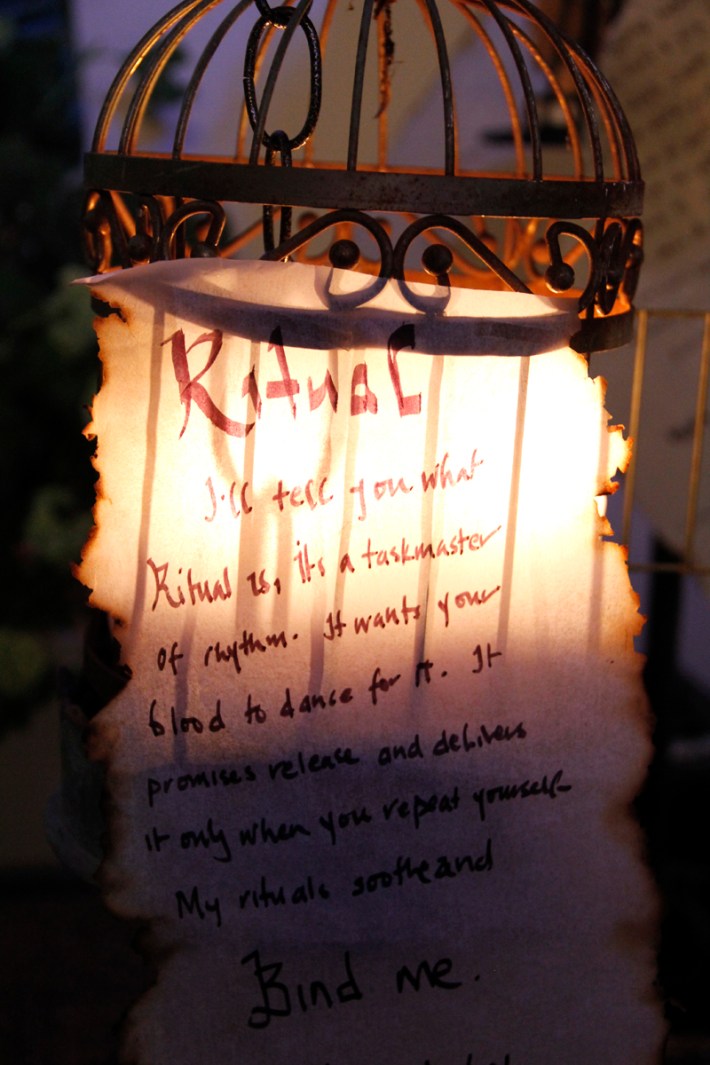 Ritual
I'll tell you what
Ritual is, its a taskmaster
of rhythm. It wants your
blood to dance for it. It
promises release and delivers
it only when you repeat yourself
My rituals soothe and
Bind me.